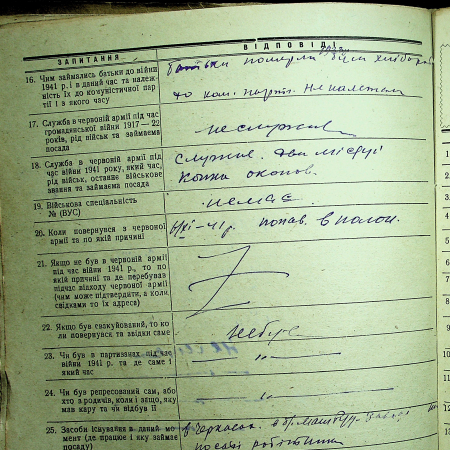 ЗАПИТАННЯ
ВІДПОВІДІ
16. Чим займались батьки до війни
1941 р. і в даний час та належ-
ність їх до комуністичної пар-
тії і з якого часу
батьки померли були хлібороб
до ком. парт. не належали
17. Служба в червоній армії під час
громадянської війни 1917—22
років, рід військ та займаєма
посада
не служив
18. Служба в червоній армії під
час війни 1941 року, який час,
рід військ, останнє військове
звання та займаєма посада
служив. два місяці
копка окопов.
19. Військова спеціальність
№ (ВУС)
немає
20. Коли повернувся з червоної
армії та по якій причині
XI-41 р. попав в полон.
21. Якщо не був в червоній армії
під час війни 1941 р., то по
якій причині та де перебував
підчас відходу червоної армії
(чим може підтвердити, а коли
свідками то їх адреса)
22. Якщо був евакуйований, то ко-
ли повернувся та звідки саме
не був
23. Чи був в партизанах під час
війни 1941 р. та де саме і
який час
— „ —
24. Чи був репресований сам, або
хто з родичів, коли і защо, яку
мав кару та чи відбув її
— „ —
25. Засоби існування в даний мо-
мент (де працює і яку займає
посаду)
в Черкасах
посаді робітника